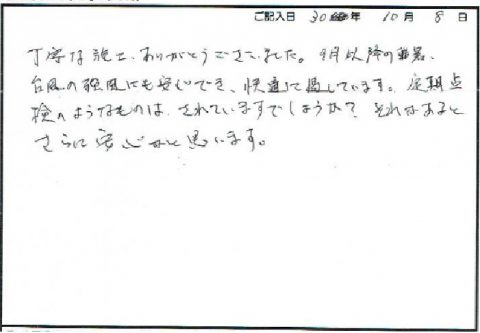 ご記入日 30年 10月 8日
丁寧な施工、ありがとうございました。9月以降の
台風の強風にも安心でき、快適に過しています。定期点
検のようなものは、されていますでしょうか？ それがあると
さらに安心かと思います。